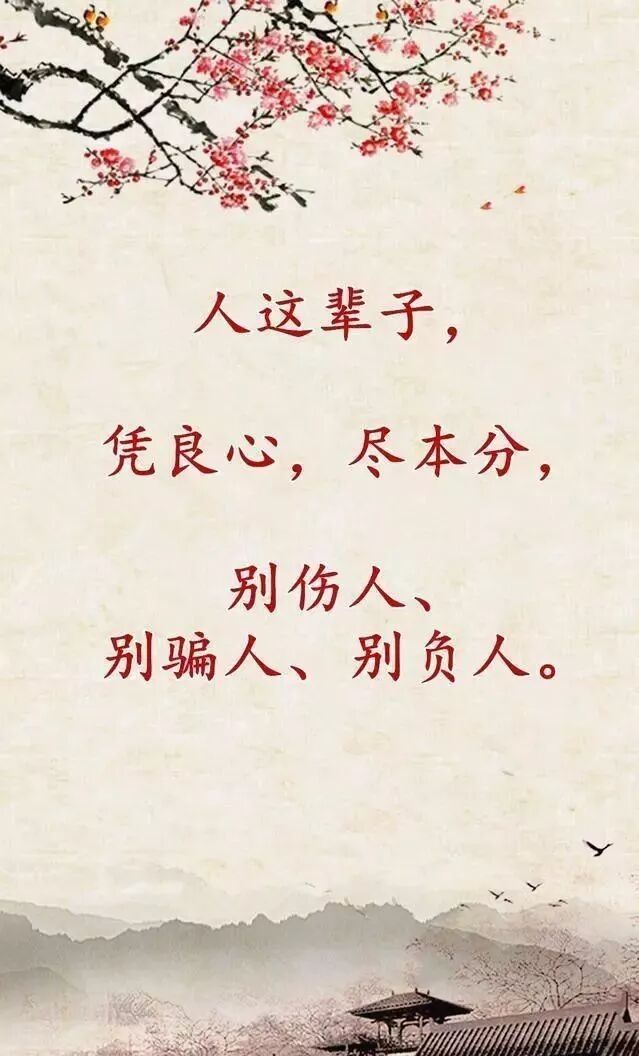 人这辈子，
凭良心，尽本分，
别伤人、
别骗人、别负人。